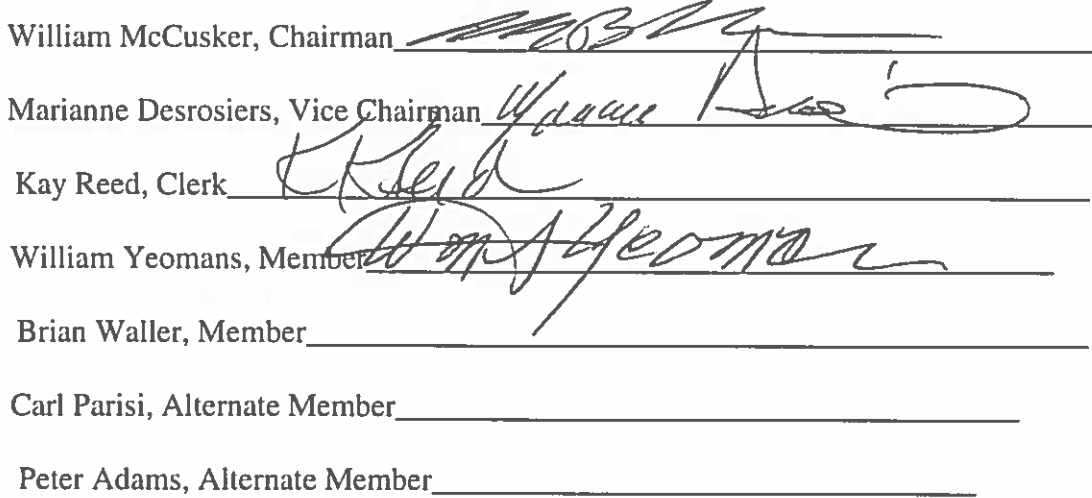 William McCusker, Chairman
Marianne Desrosiers, Vice Chairman
Kay Reed, Clerk K Reed
William Yeomans, Member Wm Yeoman
Brian Waller, Member
Carl Parisi, Alternate Member
Peter Adams, Alternate Member